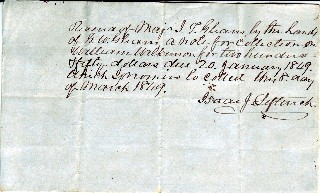 of Maj. J. T. by the hands
of a note for collection on
William Wilkinson for two hundred
fifty dollars due 20 January 1849
which I promise to collect this 8 day
of March 1849.
Isaac J.